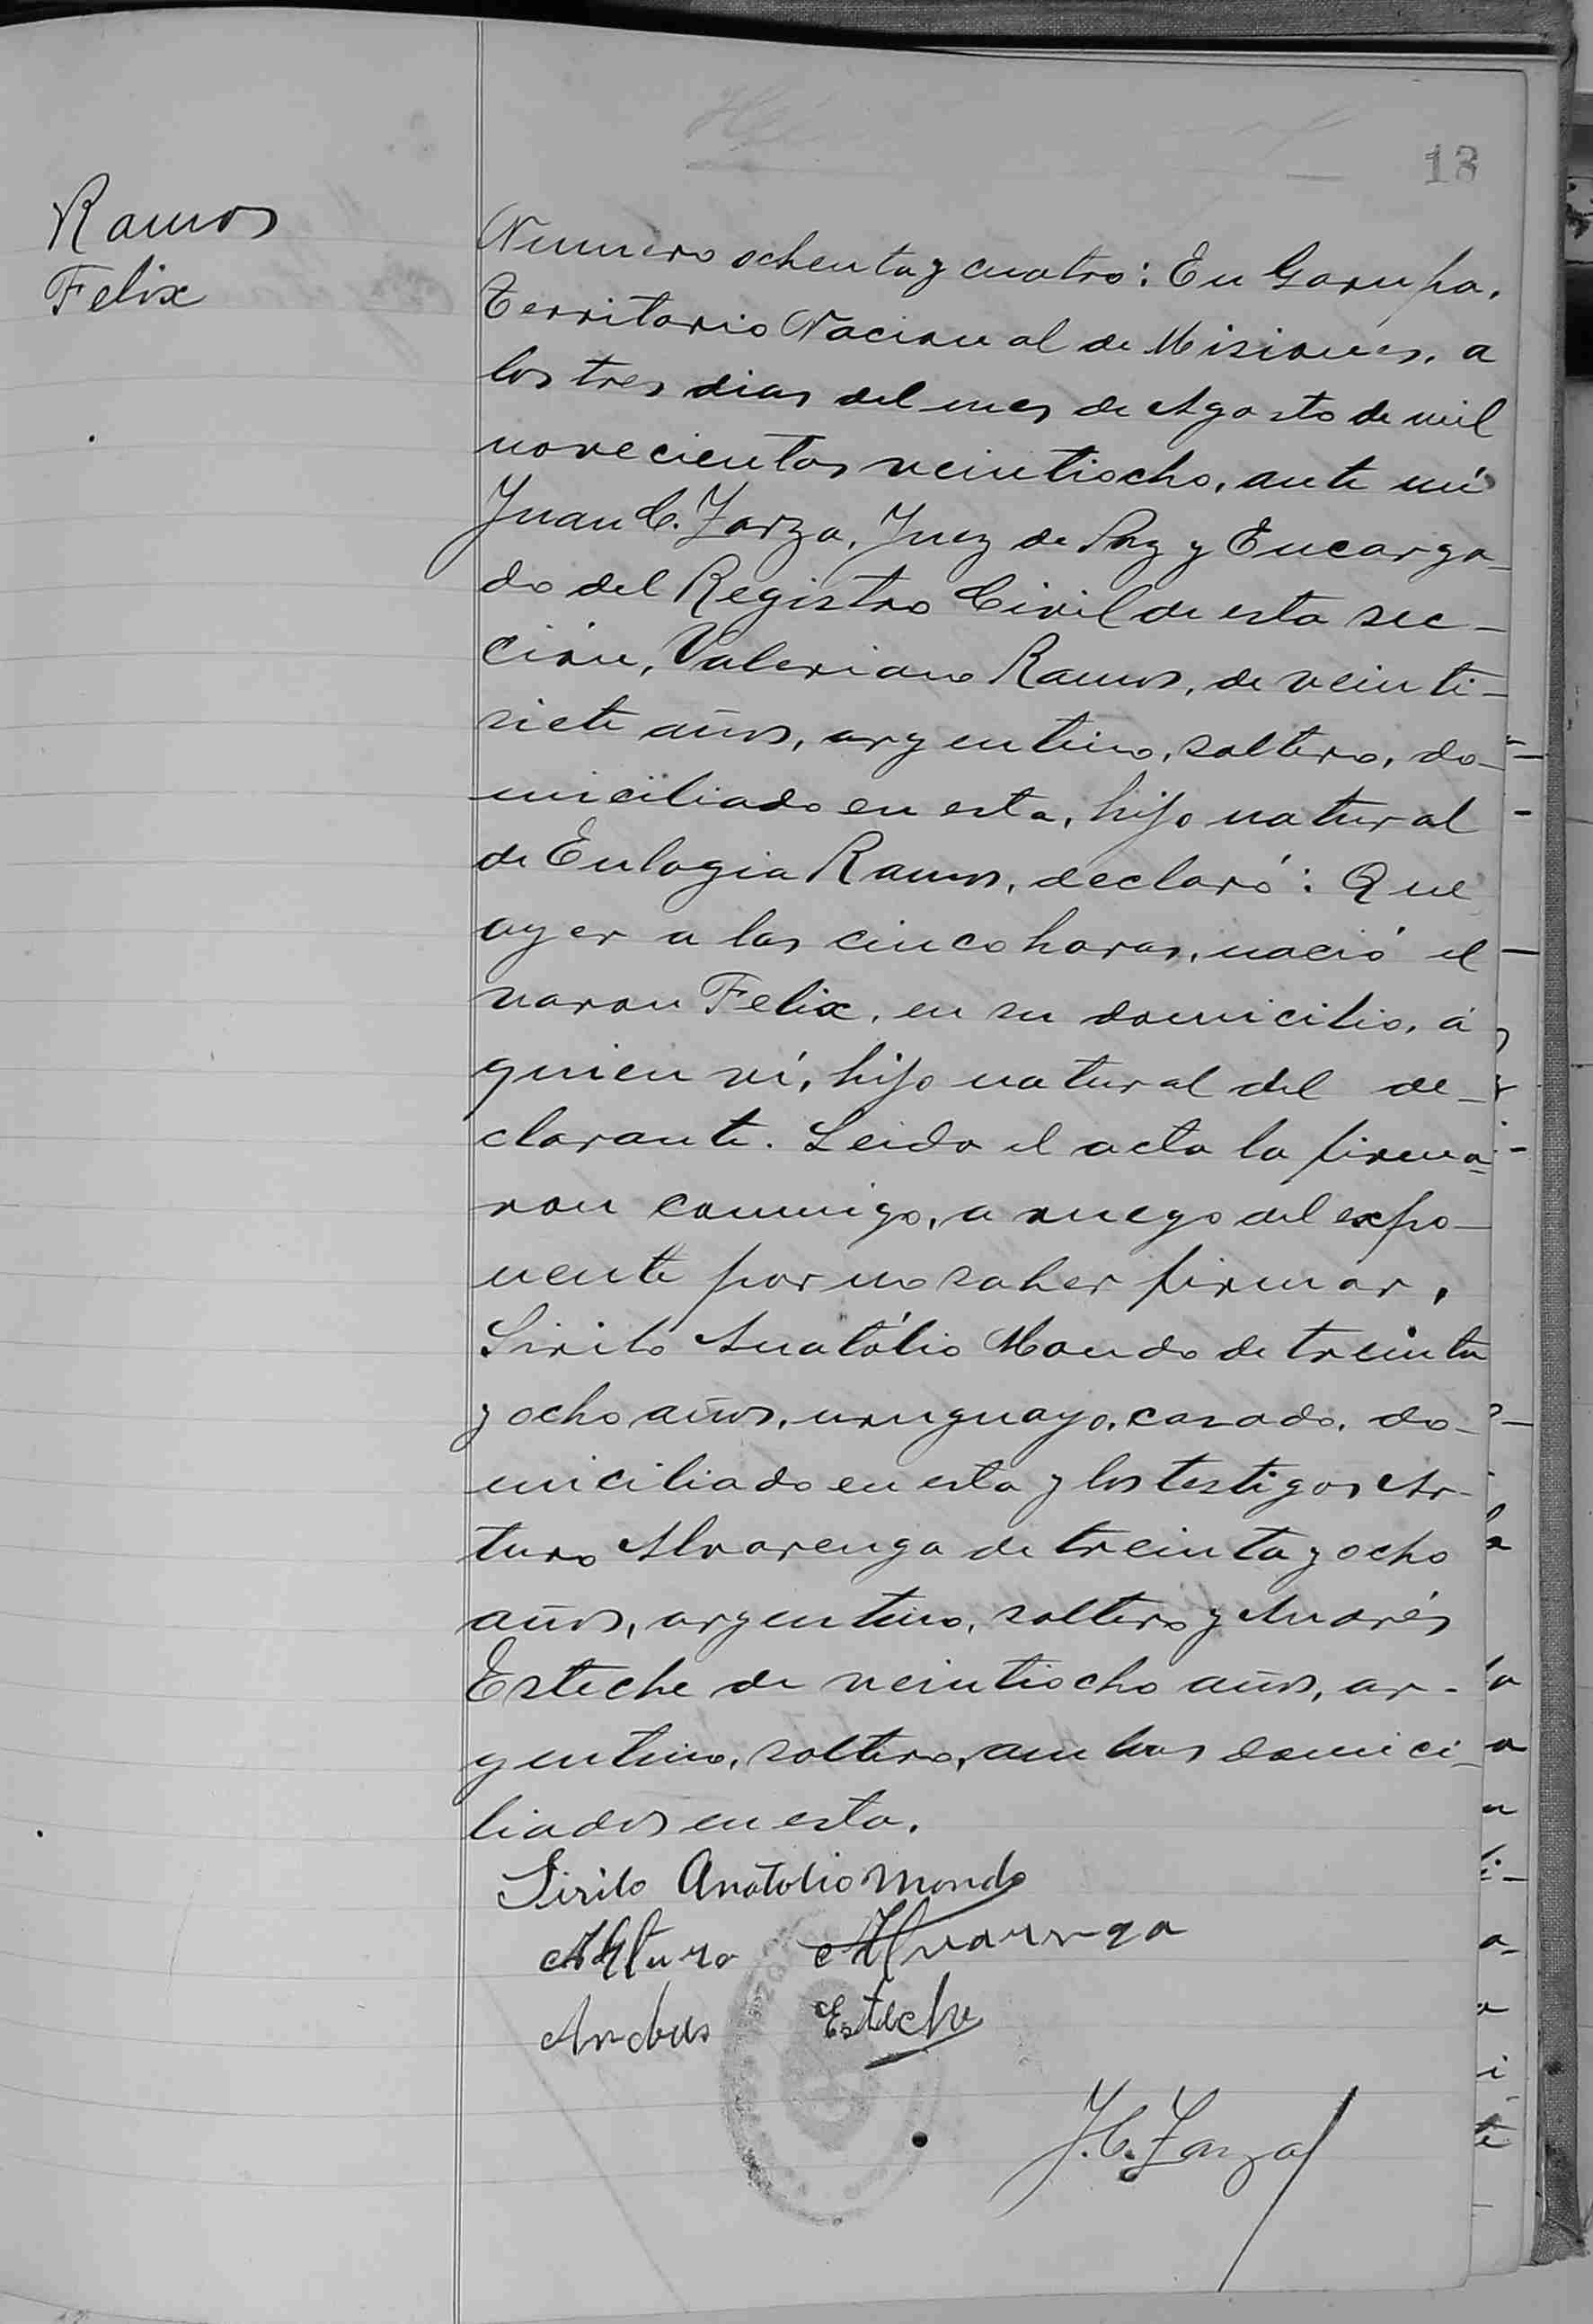 13
Ramos
Felix
Numero ochenta y cuatro: En Garupa,
Territorio Nacional de Misiones, a
los tres dias del mes de Agosto de mil
novecientos veintiocho, ante mi
Juan C. Zarza, Juez de Paz y Encarga-
do del Registro Civil de esta sec-
ción, Valeriano Ramos, de veinti-
siete años, argentino, soltero, do-
miciliado en esta, hijo natural
de Eulogia Ramos, declaró: Que
ayer a las cinco horas, nació el
varon Felix, en su domicilio, á
quien ví, hijo natural del de-
clarante. Leida el acta la firma-
ron conmigo, a ruego del expo-
nente por no saber firmar,
Sirilo Anatólio Mondo de treinta
y ocho años, uruguayo, casado, do-
miciliado en esta y los testigos Ar-
turo Alvarenga de treinta y ocho
años, argentino, soltero y Andrés
Esteche de veintiocho años, ar-
gentino, soltero, ambos domici-
liados en esta.
Sirilo Anatolio Mondo
Arturo Alvarenga
Andres Esteche
J. C. Zarza